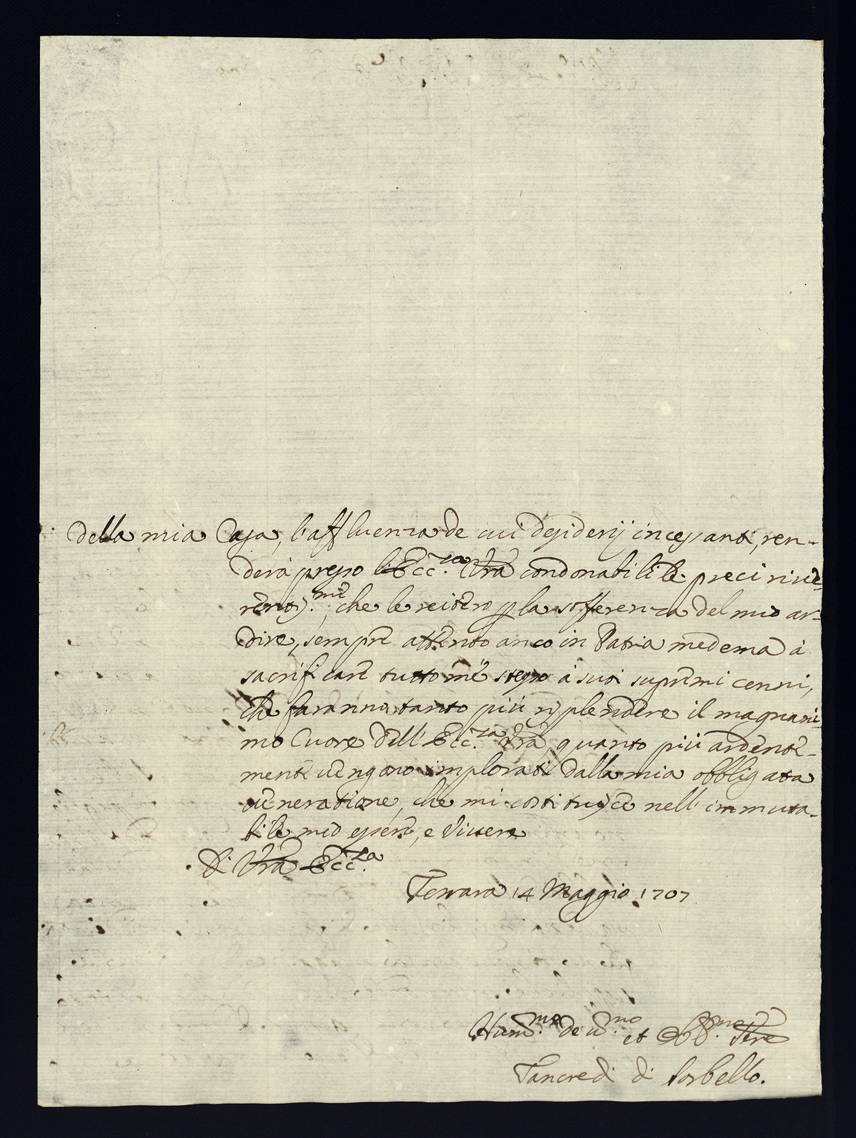 della mia Casa, l'affluenza de cui desiderij incessanti, ren-
derà presso l'Ecc.za Vrã condonabili le preci rive-
rentis.me che le reitero p la sofferenza del mio ar-
dire, sempre attento anco in Patria medema à
sacrificare tutto mè stesso à suoi supremi cenni,
che faranno tanto più risplendere il magnani-
mo Cuore dell'Ecc.za Vrã, quanto più ardente-
mente vengono implorati dalla mia obbligata
veneratione, che mi costituisce nell'immuta-
bile mio essere, e vivere
Di Vrã Ecc.za
Ferrara 14 Maggio 1707
Hum.mo dev.no et Obb.mo Ser.re
Tancredi di Sorbello.